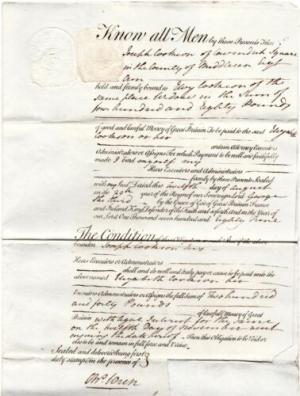 Know all Men by these Presents That
Joseph Cookson of Cavendish Square
in the County of Middlesex Esqr
am
held and firmly bound to Cookson of the
same place in the Sum of
four hundred and Eighty Pounds
of good and lawful Money of Great Britain to be paid to the said
Cookson or her certain Attorney Executors
Administrators or Assigns For which Payment to be well and faithfully
made I bind myself my
Heirs Executors and Administrators
firmly by these Presents Sealed
with my Seal Dated this twelfth day of August
in the 29th year of the Reign of our Sovereign Lord George
the third by the Grace of God of Great Britain France
and Ireland King Defender of the Faith and so forth and in the Year of
our Lord One thousand seven hundred and Eighty Nine
The Condition
bounden Joseph Cookson his
Heirs Executors or Administrators
shall and do well and truly pay or cause to be paid unto the
abovenamed Elizabeth Cookson her
Executors Administrators or Assigns the full Sum of Two hundred
and forty Pounds
of lawful Money of Great
Britain with legal Interest for the same
on the twelfth Day of November next
ensuing the date hereof Then this Obligation to be Void or
else to be and remain in full force and Virtue
Sealed and delivered being first
duly stampt in the presence of
Wren